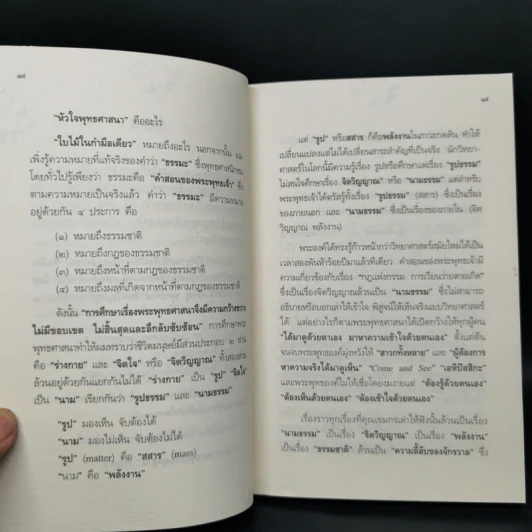 ๑๔
"หัวใจพุทธศาสนา" คืออะไร
"ใบไม้ในกำมือเดียว" หมายถึงอะไร นอกจากนั้น ผม
เพิ่งรู้ความหมายที่แท้จริงของคำว่า "ธรรมะ" ซึ่งพุทธศาสนิกชน
โดยทั่วไปรู้เพียงว่า ธรรมะคือ "คำสอนของพระพุทธเจ้า" ซึ่ง
ตามความหมายเป็นจริงแล้ว คำว่า "ธรรมะ" มีความหมาย
อยู่ด้วยกัน ๔ ประการ คือ
(๑) หมายถึงธรรมชาติ
(๒) หมายถึงกฎของธรรมชาติ
(๓) หมายถึงหน้าที่ตามกฎของธรรมชาติ
(๔) หมายถึงผลที่เกิดจากหน้าที่ตามกฎของธรรมชาติ
ดังนั้น "การศึกษาเรื่องพระพุทธศาสนาจึงมีความกว้างขวาง
ไม่มีขอบเขต ไม่สิ้นสุดและลึกลับซับซ้อน" การศึกษาพระ
พุทธศาสนาทำให้ผมทราบว่าชีวิตมนุษย์มีส่วนประกอบ ๒ ส่วน
คือ "ร่างกาย" และ "จิตใจ" หรือ "จิตวิญญาณ" ทั้งสองส่วน
ล้วนอยู่ด้วยกันแยกกันไม่ได้ "ร่างกาย" เป็น "รูป" "จิตใจ"
เป็น "นาม" เรียกกันว่า "รูปธรรม" และ "นามธรรม"
"รูป" มองเห็น จับต้องได้
"นาม" มองไม่เห็น จับต้องไม่ได้
"รูป" (matter) คือ "สสาร" (mass)
"นาม" คือ "พลังงาน"
แต่ "รูป" หรือสสาร ก็คือพลังงานในภาวะกดดัน ทำให้
เปลี่ยนแปลงแต่ไม่ได้เปลี่ยนสาระสำคัญที่เป็นจริง นักวิทยา-
ศาสตร์ในโลกนี้มีความรู้เรื่อง รูปหรือศึกษาแต่เรื่อง "รูปธรรม"
ไม่สนใจศึกษาเรื่อง จิตวิญญาณ หรือ "นามธรรม" แต่สำหรับ
พระพุทธเจ้าได้ตรัสรู้ทั้งเรื่อง "รูปธรรม" (สสาร) ซึ่งเป็นเรื่อง
ของภายนอก และ "นามธรรม" ซึ่งเป็นเรื่องของภายใน (จิต
วิญญาณ พลังงาน)
พระองค์ได้ทรงรู้ก้าวหน้ากว่าวิทยาศาสตร์สมัยใหม่ได้เป็น
เวลาสองพันห้าร้อยปีมาแล้วทีเดียว คำสอนของพระพุทธเจ้ามี
ความเกี่ยวข้องกับเรื่อง "กฎแห่งกรรม การเวียนว่ายตายเกิด"
ซึ่งเป็นเรื่องจิตวิญญาณล้วนเป็น "นามธรรม" ซึ่งไม่สามารถ
อธิบายหรือบอกเล่าให้เข้าใจ พิสูจน์ให้เห็นจริงแบบวิทยาศาสตร์
ได้ แต่อย่างไรก็ตามพระพุทธศาสนาได้เปิดกว้างให้ทุกผู้คน
"ได้มาดูด้วยตาเอง มาหาความเข้าใจด้วยตนเอง" ตั้งแต่ต้น
จนจบพระพุทธองค์มุ่งหวังให้ "สาวกทั้งหลาย" และ "ผู้ต้องการ
หาความจริงได้มาดูเห็น" "Come and See" "เอหิปัสสิกะ"
และพระพุทธองค์ไม่ให้เชื่อโดยงมงายแต่ "ต้องรู้ด้วยตนเอง"
"ต้องเห็นด้วยตนเอง" "ต้องเข้าใจด้วยตนเอง"
เรื่องราวทุกเรื่องที่คุณเขมกรเล่าให้ฟังนั้นล้วนเป็นเรื่อง
"นามธรรม" เป็นเรื่อง "จิตวิญญาณ" เป็นเรื่อง "พลังงาน"
เป็นเรื่อง "ธรรมชาติ" ล้วนเป็น "ความลี้ลับของจักรวาล" ซึ่ง